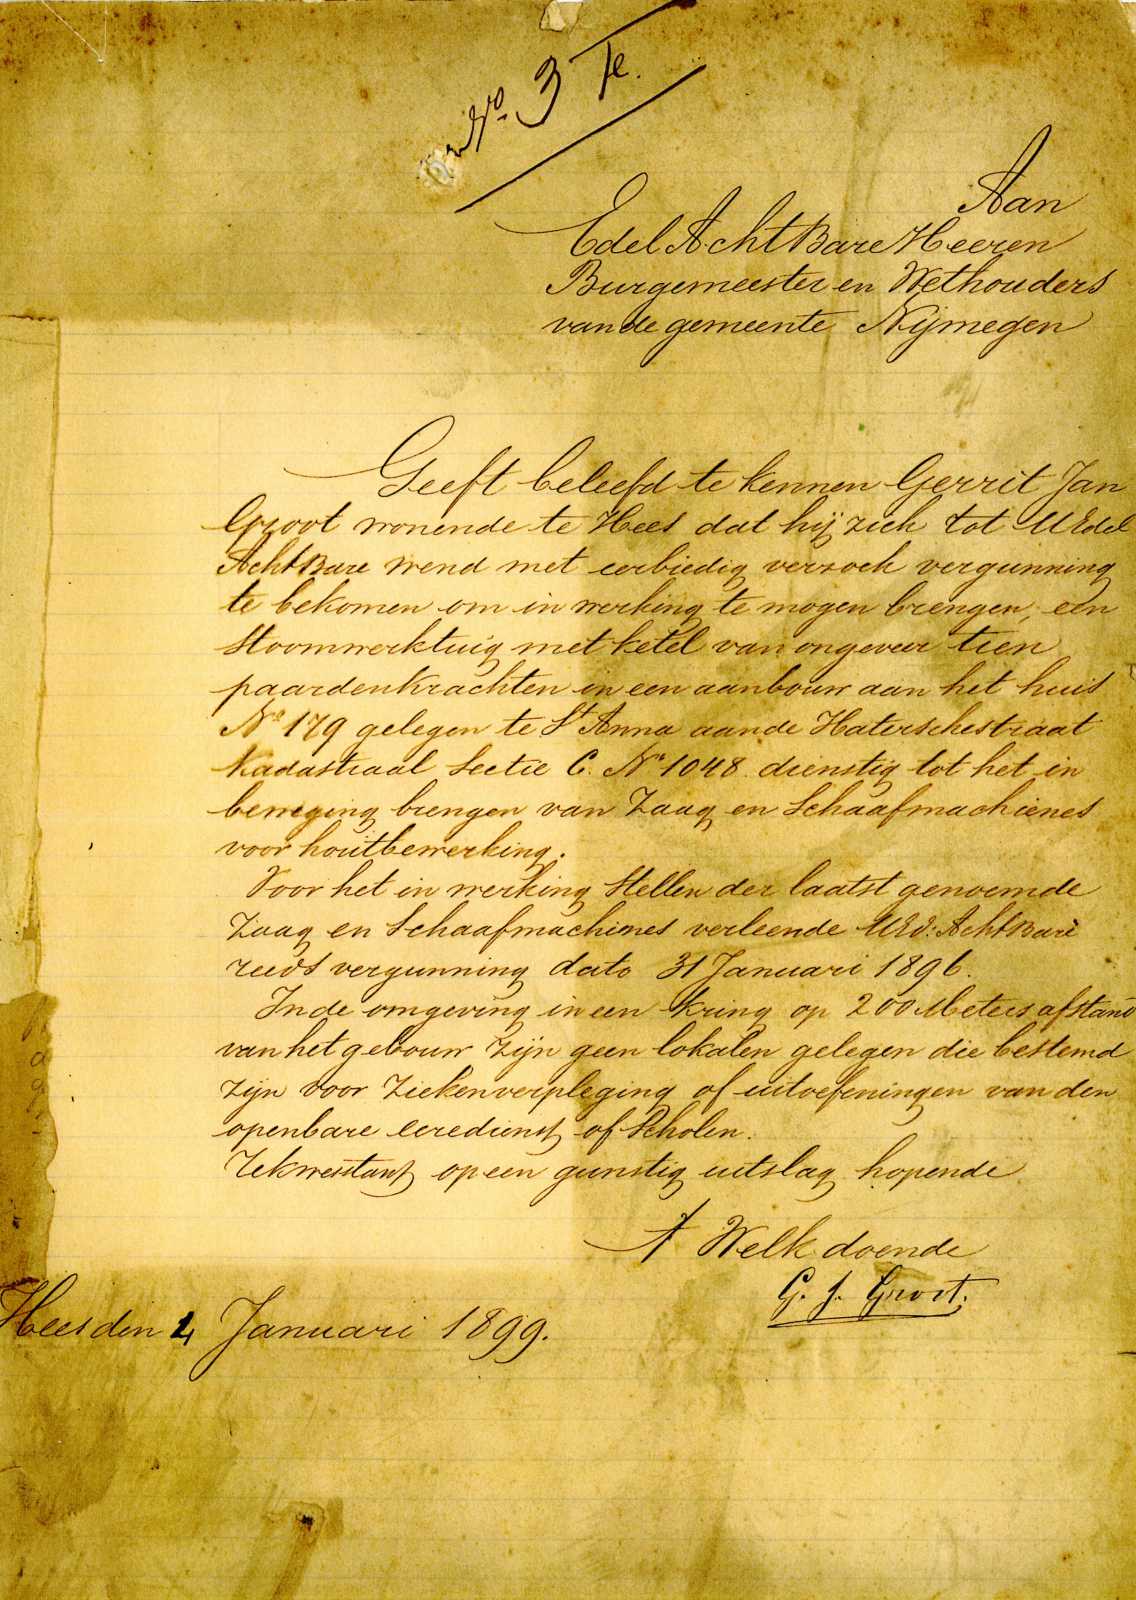 No. 3
Aan
Edel AchtBare Heeren
Burgemeester en Wethouders
van de gemeente Nijmegen
Geeft beleefd te kennen Gerrit Jan
Groot wonende te Hees dat hij zich tot UEdel
AchtBare wend met eerbiedig verzoek vergunning
te bekomen om in werking te mogen brengen, een
stoomwerktuig met ketel van ongeveer tien
paardenkrachten in een aanbouw aan het huis
No 179 gelegen te St Anna aan de Haterschestraat
Kadastraal Sectie C. No 1048 dienstig tot het in
beweging brengen van Zaag en Schaafmachienes
voor houtbewerking.
Voor het in werking stellen der laatst genoemde
Zaag en Schaafmachines verleende UEd: AchtBare
reeds vergunning dato 31 Januari 1896.
In de omgeving in een kring op 200 Meters afstand
van het gebouw zijn geen lokalen gelegen die bestemd
zijn voor Ziekenverpleging of uitoefeningen van den
openbare eeredienst of Scholen.
Rekwestant op een gunstig uitslag hopende
Welk doende
G. J. Groot.
Hees den 4 Januari 1899.